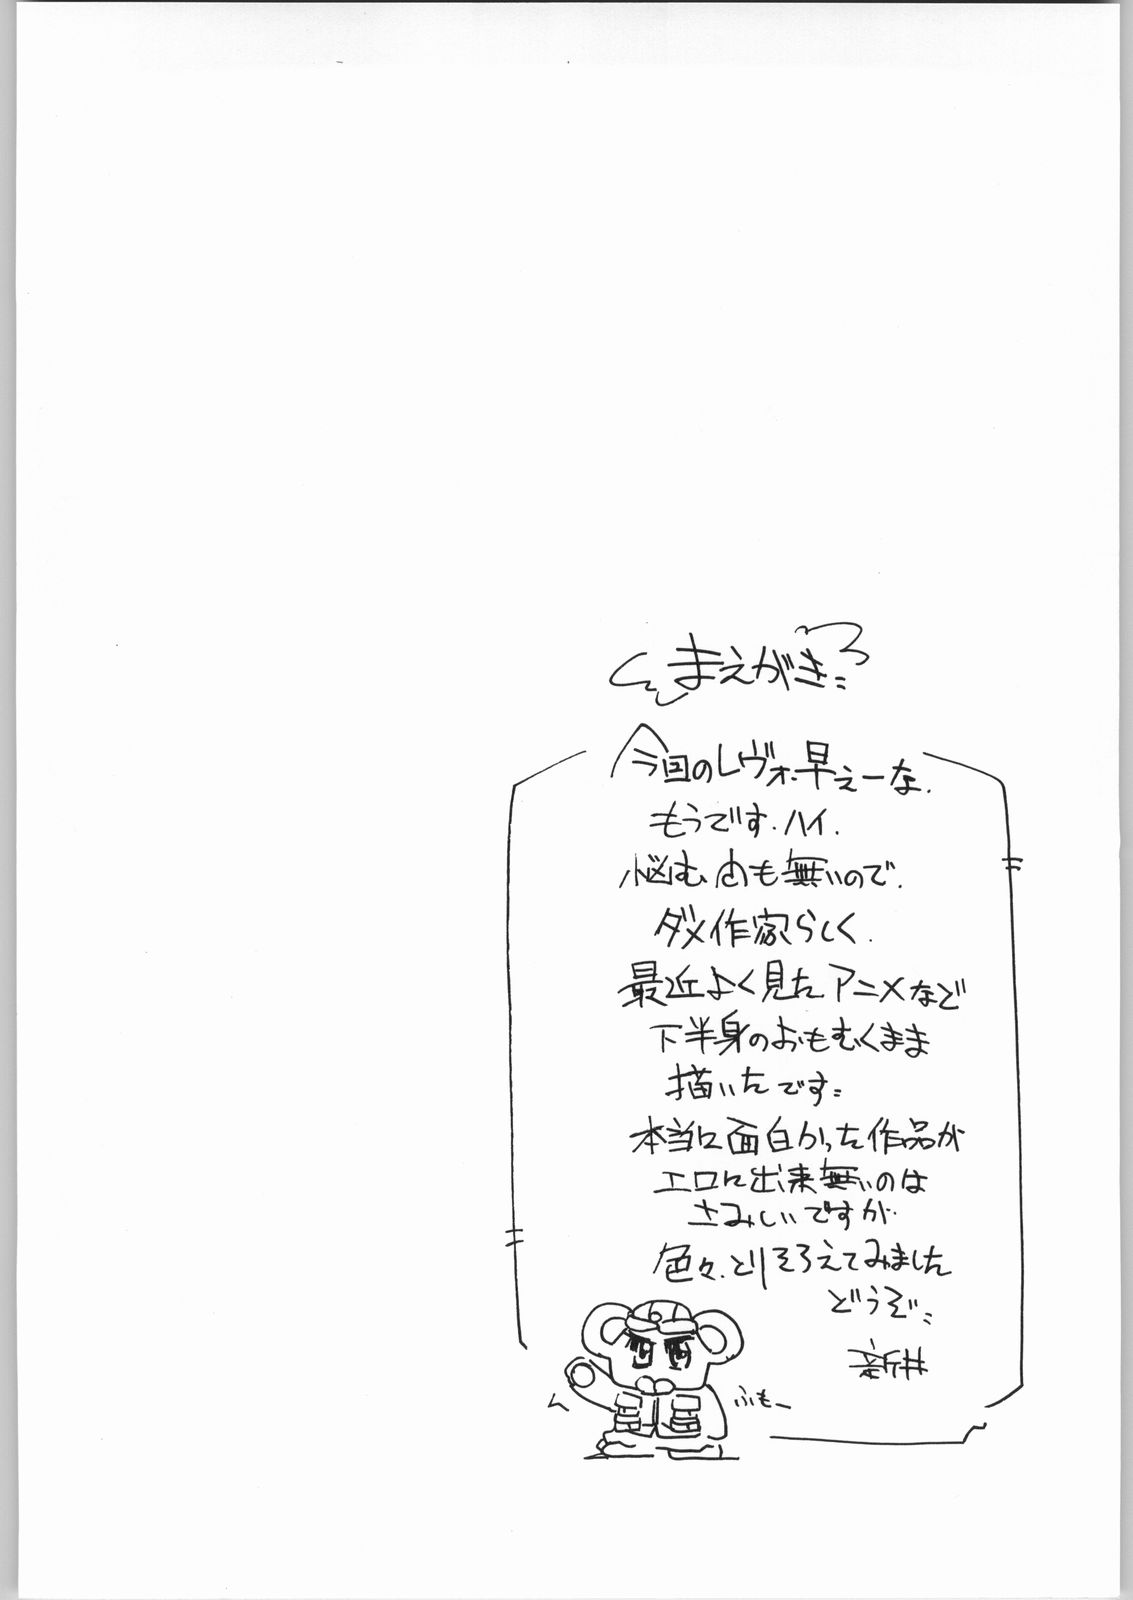 まえがき
今回のレヴォ早えーな.
もうです.ハイ.
悩む間も無いので.
ダメ作家らしく.
最近よく見たアニメなど
下半身のおもむくまま
描いたです
本当に面白かった作品が
エロに出来無いのは
さみしいですが
色々.とりそろえてみました
どうぞ
新井
ふもー